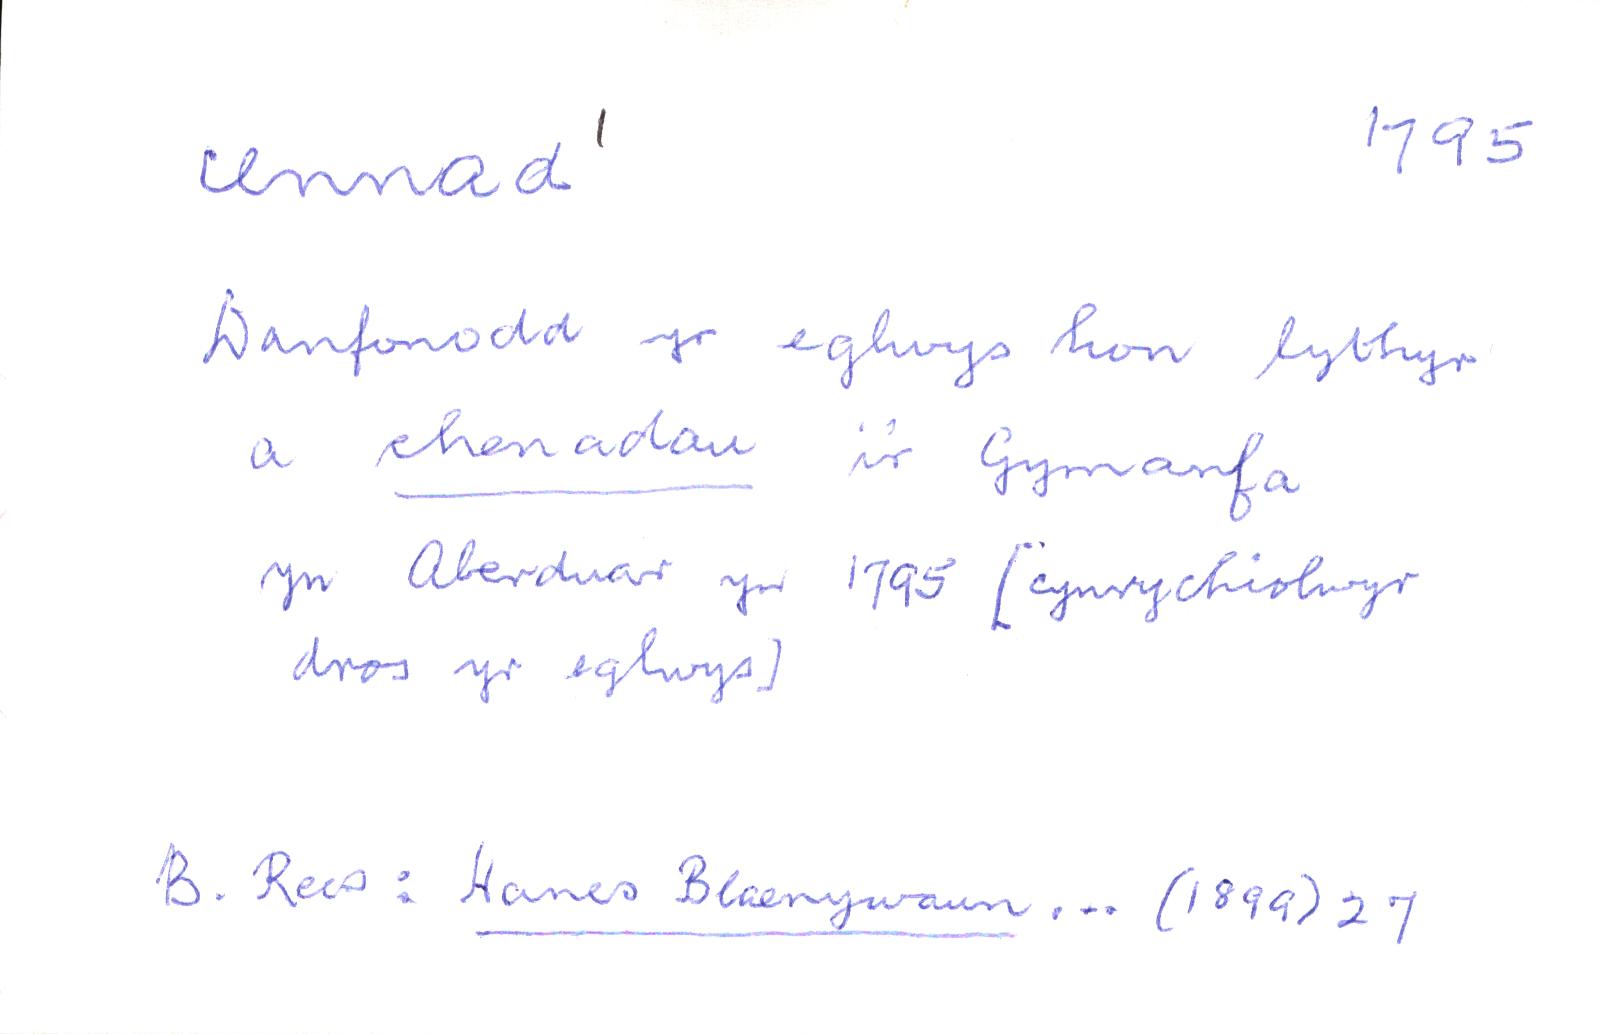 cennad¹ 1795
Danfonodd yr eglwys hon lythyr
a chenadau i'r Gymanfa
yn Aberduar yn 1795 [cynrychiolwyr
dros yr eglwys]
B. Rees: Hanes Blaenywaun... (1899) 27